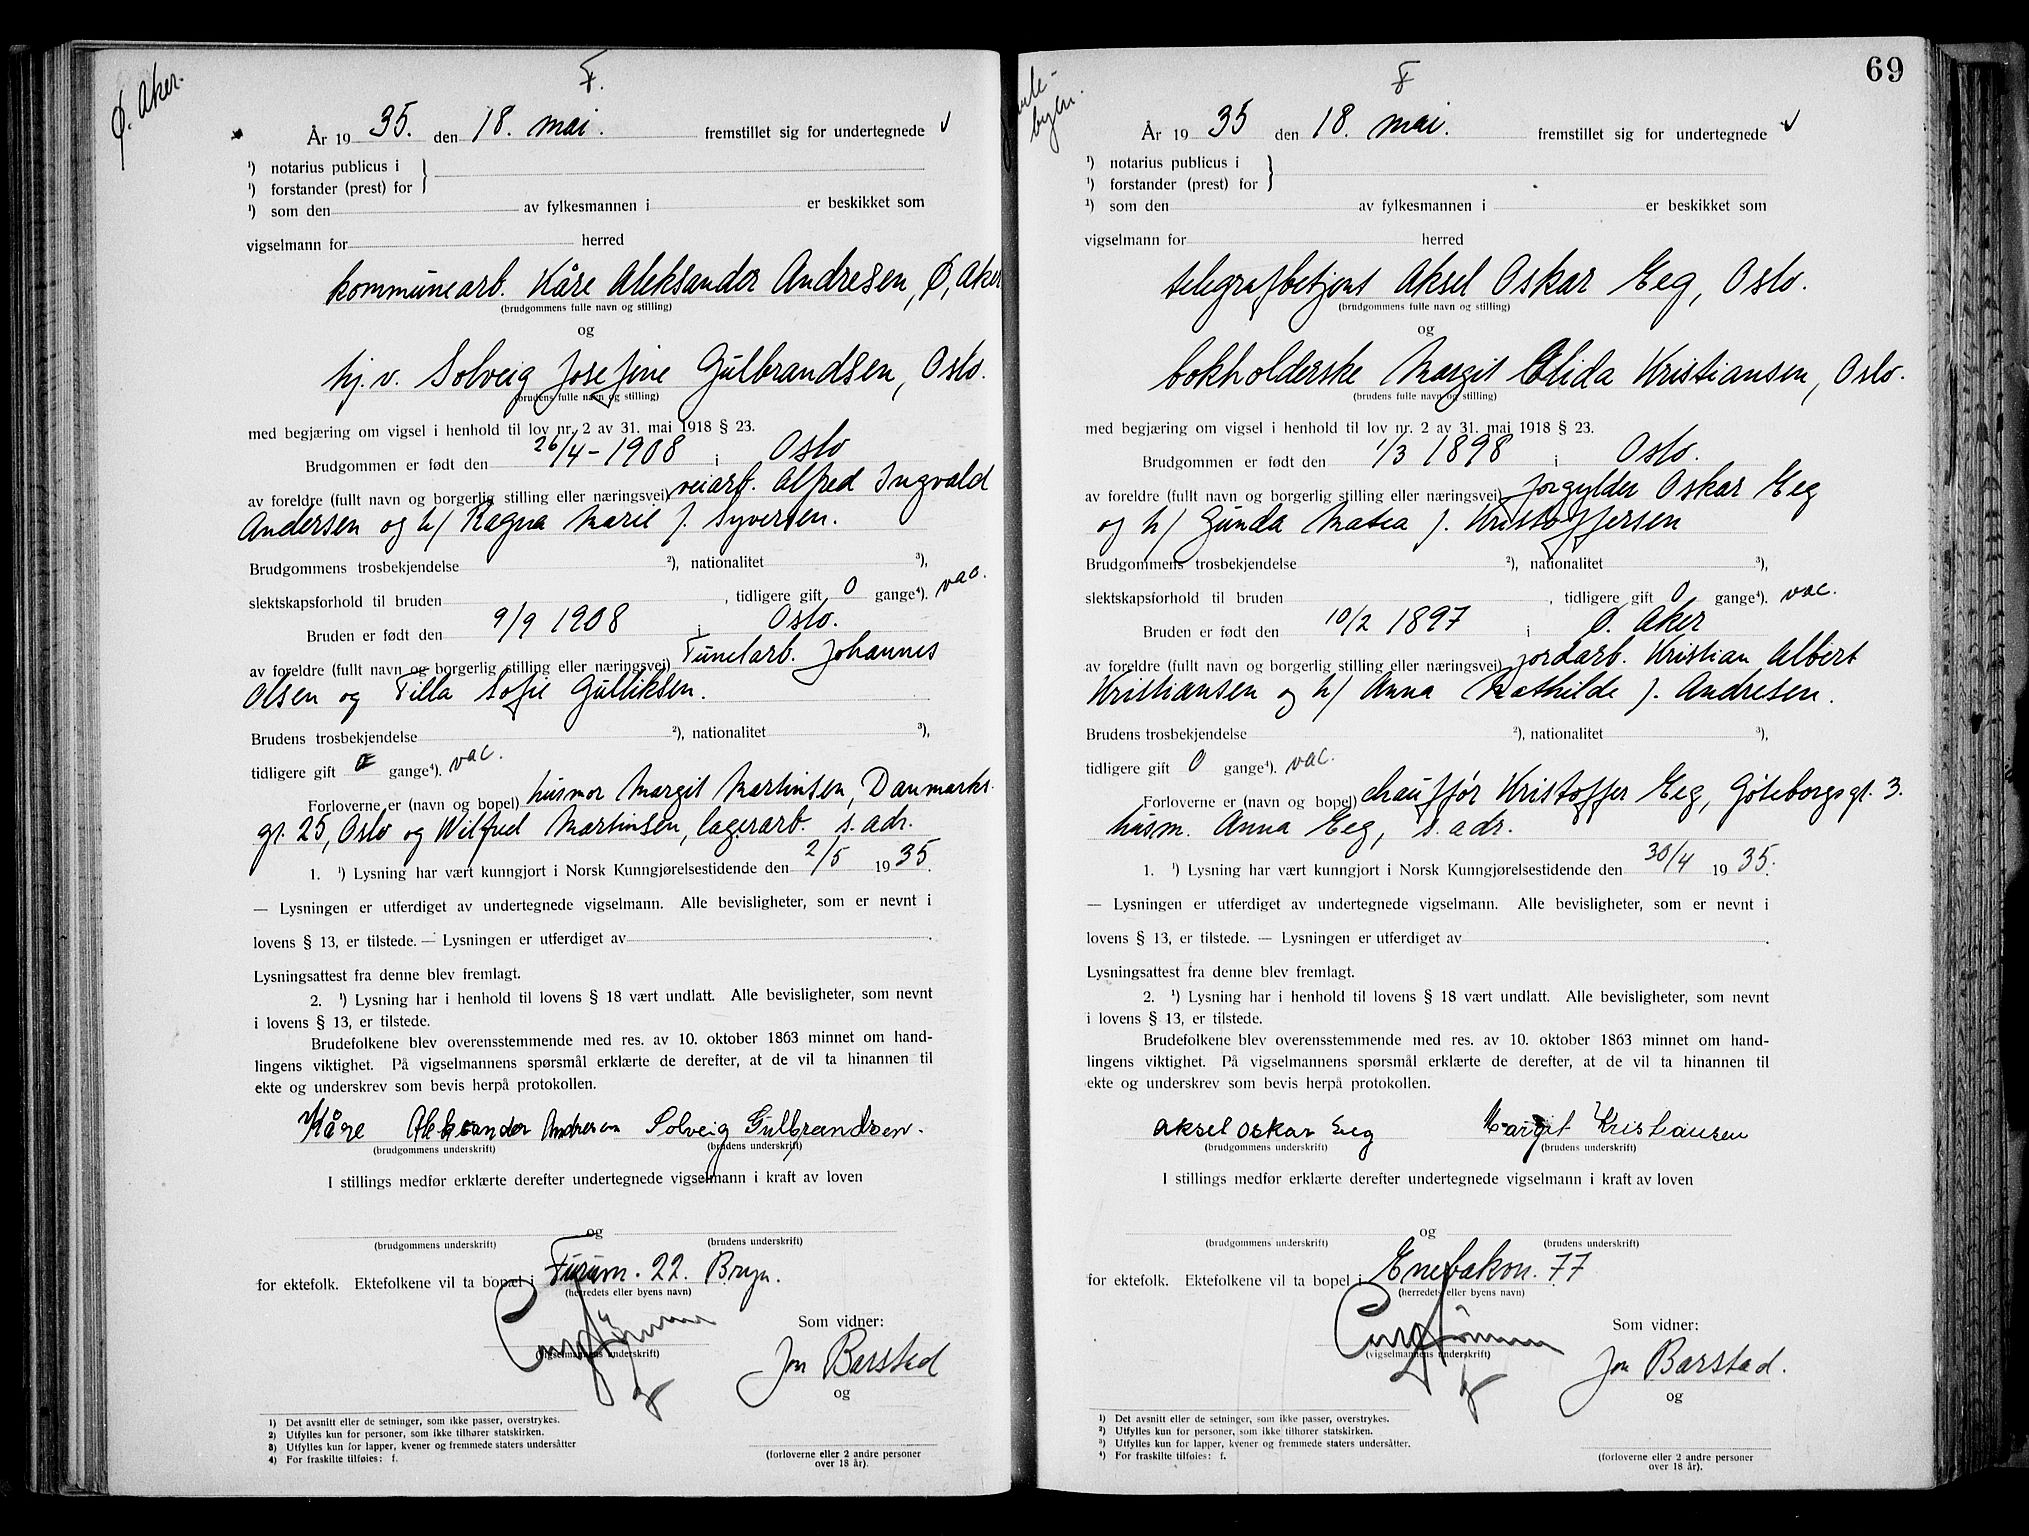 Ø. Aker.
F.
År 1935. den 18. mai. fremstillet sig for undertegnede
¹) notarius publicus i
¹) forstander (prest) for
¹) som den av fylkesmannen i er beskikket som
vigselmann for herred
kommunearb. Kåre Aleksander Andresen, Ø. Aker
(brudgommens fulle navn og stilling)
og
hj.v. Solveig Josefine Gulbrandsen, Oslo.
(brudens fulle navn og stilling)
med begjæring om vigsel i henhold til lov nr. 2 av 31. mai 1918 § 23.
Brudgommen er født den 26/4-1908 i Oslo
av foreldre (fullt navn og borgerlig stilling eller næringsvei) veiarb. Alfred Ingvald
Andersen og h/ Ragna Marie f. Syversen.
Brudgommens trosbekjendelse ²), nationalitet ³),
slektskapsforhold til bruden , tidligere gift 0 gange⁴). vac.
Bruden er født den 9/9 1908 i Oslo.
av foreldre (fullt navn og borgerlig stilling eller næringsvei) Tunelarb. Johannes
Olsen og Tilla Sofie Gulliksen.
Brudens trosbekjendelse ²), nationalitet ³),
tidligere gift 0 gange⁴). vac.
Forloverne er (navn og bopel) husmor Margit Martinsen, Danmarks
gt. 25, Oslo og Wilfred Martinsen, lagerarb. s. adr.
1. ¹) Lysning har vært kunngjort i Norsk Kunngjørelsestidende den 2/5 1935.
— Lysningen er utferdiget av undertegnede vigselmann. Alle bevisligheter, som er nevnt i
lovens § 13, er tilstede. — Lysningen er utferdiget av .
Lysningsattest fra denne blev fremlagt.
2. ¹) Lysning har i henhold til lovens § 18 vært undlatt. Alle bevisligheter, som nevnt
i lovens § 13, er tilstede.
Brudefolkene blev overensstemmende med res. av 10. oktober 1863 minnet om hand-
lingens viktighet. På vigselmannens spørsmål erklærte de derefter, at de vil ta hinannen til
ekte og underskrev som bevis herpå protokollen.
Kåre Aleksander Andresen Solveig Gulbrandsen.
(brudgommens underskrift) (brudens underskrift)
I stillings medfør erklærte derefter undertegnede vigselmann i kraft av loven
og
(brudgommens underskrift) (brudens underskrift)
for ektefolk. Ektefolkene vil ta bopel i Furuvn. 22. Bryn.
(herredets eller byens navn)
Som vidner:
(vigselmannens underskrift)
Jon Barstad
og
1) Det avsnitt eller de setninger, som ikke passer, overstrykes.
2) Utfylles kun for personer, som ikke tilhører statskirken.
3) Utfylles kun for lapper, kvener og fremmede staters undersåtter
4) For fraskilte tilføies: f.
(forloverne eller 2 andre personer
over 18 år).
69
byen.
F
År 1935 den 18. mai. fremstillet sig for undertegnede
¹) notarius publicus i
¹) forstander (prest) for
¹) som den av fylkesmannen i er beskikket som
vigselmann for herred
telegrafbetjent Aksel Oskar Eeg, Oslo.
(brudgommens fulle navn og stilling)
og
bokholderske Margit Elida Kristiansen, Oslo.
(brudens fulle navn og stilling)
med begjæring om vigsel i henhold til lov nr. 2 av 31. mai 1918 § 23.
Brudgommen er født den 1/3 1898 i Oslo.
av foreldre (fullt navn og borgerlig stilling eller næringsvei) forgylder Oskar Eeg
og h/ Gunda Matea f. Kristoffersen
Brudgommens trosbekjendelse ²), nationalitet ³),
slektskapsforhold til bruden , tidligere gift 0 gange⁴). vac.
Bruden er født den 10/2 1897 i Ø. Aker
av foreldre (fullt navn og borgerlig stilling eller næringsvei) jordarb. Kristian Albert
Kristiansen og h/ Anna Mathilde f. Andresen.
Brudens trosbekjendelse ²), nationalitet ³),
tidligere gift 0 gange⁴). vac.
Forloverne er (navn og bopel) chauffør Kristoffer Eeg, Gøteborggt. 3.
husm. Anna Eeg, s. adr.
1. ¹) Lysning har vært kunngjort i Norsk Kunngjørelsestidende den 30/4 1935.
— Lysningen er utferdiget av undertegnede vigselmann. Alle bevisligheter, som er nevnt i
lovens § 13, er tilstede. — Lysningen er utferdiget av .
Lysningsattest fra denne blev fremlagt.
2. ¹) Lysning har i henhold til lovens § 18 vært undlatt. Alle bevisligheter, som nevnt
i lovens § 13, er tilstede.
Brudefolkene blev overensstemmende med res. av 10. oktober 1863 minnet om hand-
lingens viktighet. På vigselmannens spørsmål erklærte de derefter, at de vil ta hinannen til
ekte og underskrev som bevis herpå protokollen.
Aksel Oskar Eeg Margit Kristiansen
(brudgommens underskrift) (brudens underskrift)
I stillings medfør erklærte derefter undertegnede vigselmann i kraft av loven
og
(brudgommens underskrift) (brudens underskrift)
for ektefolk. Ektefolkene vil ta bopel i Enebakvn. 77
(herredets eller byens navn)
Som vidner:
(vigselmannens underskrift)
Jon Barstad.
og
1) Det avsnitt eller de setninger, som ikke passer, overstrykes.
2) Utfylles kun for personer, som ikke tilhører statskirken.
3) Utfylles kun for lapper, kvener og fremmede staters undersåtter.
4) For fraskilte tilføies: f.
(forloverne eller 2 andre personer
over 18 år).